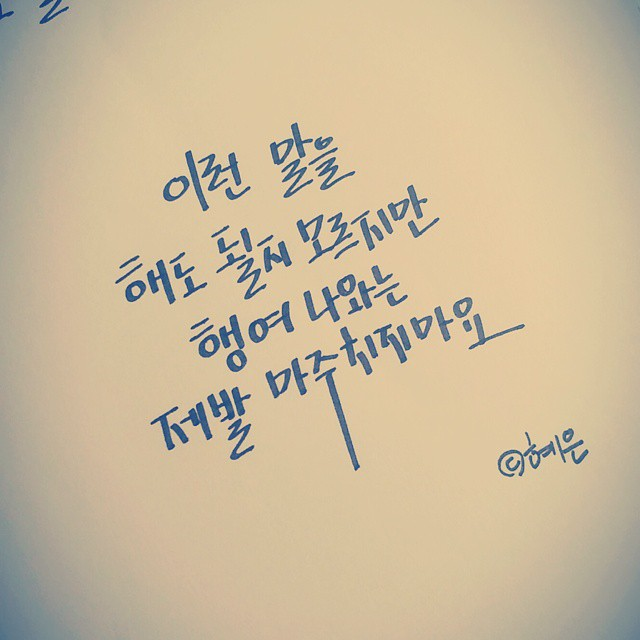 이런 말을
해도 될지 모르지만
행여 나와는
제발 마주치지마요
©혜은